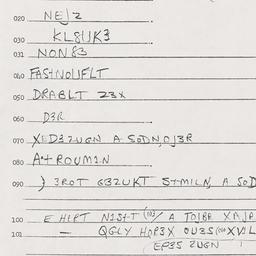 020 NEJ2
030 KL8UK3
031 NON83
040 FASTNOUFLT
050 DRABLT 23X
060 D3R
070 XED32UGN A SODN,OJ3R
080 A+ROUM2N
090 ) 3ROT G32UKT S+MILN, A SOD
100 E HLPT N1S+T (103) / A TOJBR XAJR
101 — QGLY HOP3X OU3S XVIL
EP3S 2UGN